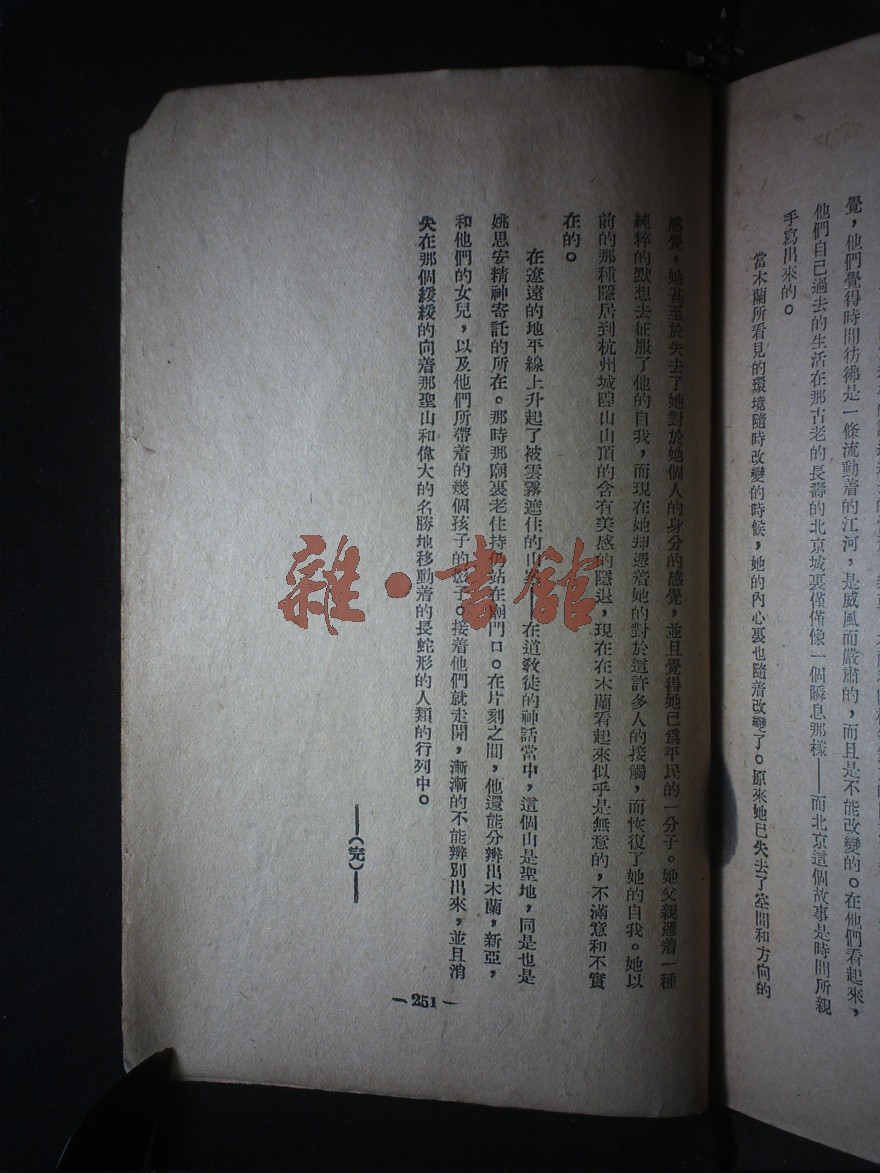 覺，他們覺得時間彷彿是一條流動着的江河，是威風而嚴肅的，而且是不能改變的。在他們看起來，
他們自己過去的生活在那古老的長壽的北京城裏僅僅像一個瞬息那樣——而北京這個故事是時間所親
手寫出來的。
當木蘭所看見的環境隨時改變的時候，她的內心裏也隨着改變了。原來她已失去了空間和方向的
感覺，她甚至於失去了她對於她個人的身分的感覺，並且覺得她已爲平民的一分子。她父親憑着一種
純粹的默想去征服了他的自我，而現在她却憑着她的對於這許多人的接觸，而恢復了她的自我。她以
前的那種隱居到杭州城隍山山頂的含有美感的隱退，現在在木蘭看起來似乎是無意的，不滿意和不實
在的。
在遼遠的地平線上升起了被雲霧遮住的山——在道敎徒的神話當中，這個山是聖地，同是也是
姚思安精神寄託的所在。那時那廟裏老住持站在廟門口。在片刻之間，他還能分辨出木蘭，新亞，
和他們的女兒，以及他們所帶着的幾個孩子的影子。接着他們就走開，漸漸的不能辨別出來，並且消
失在那個緩緩的向着那聖山和偉大的名勝地移動着的長蛇形的人類的行列中。
——（完）——
— 251 —
雜·書館